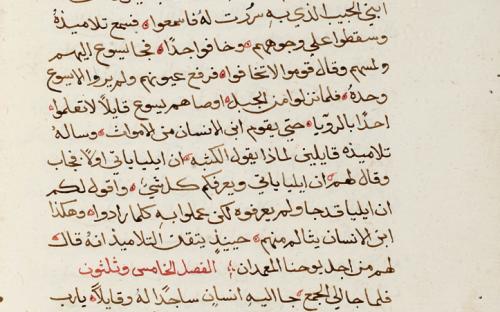 ابني الحبيب الذي به سررت له فاسمعوا فسمع تلاميذه
وسقطوا علي وجوههم وخافوا جدا فجا يسوع اليهم
ولمسهم وقال قوموا لا تخافوا فرفع عيونهم ولم يروا الا يسوع
وحده فلما نزلوا من الجبل اوصاهم يسوع قايلا لا تعلموا
احدا بالرويا حتي يقوم ابن الانسان من الاموات وساله
تلاميذه قايلين لماذا يقول الكتبه ان ايليا ياتي اولا فجاب
وقال لهم ان ايليا ياتي ويعرفكم كل شي واقول لكم
ان ايليا قد جا ولم يعرفوه لكن عملوا به كلما ارادوا وهكذا
ابن الانسان يتالم منهم حينيذ يتقن التلاميذ انه قال
لهم من اجل يوحنا المعمدان الفصل الخامس وثلثون
فلما جا الي الجمع جا اليه انسان ساجدا له وقايلا يا رب